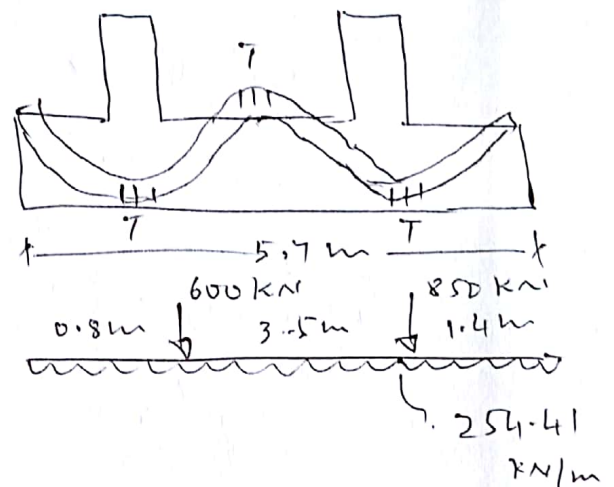 T
T T
5.7 m
600 KN 850 KN
0.8m 3.5m 1.4m
254.41
KN/m